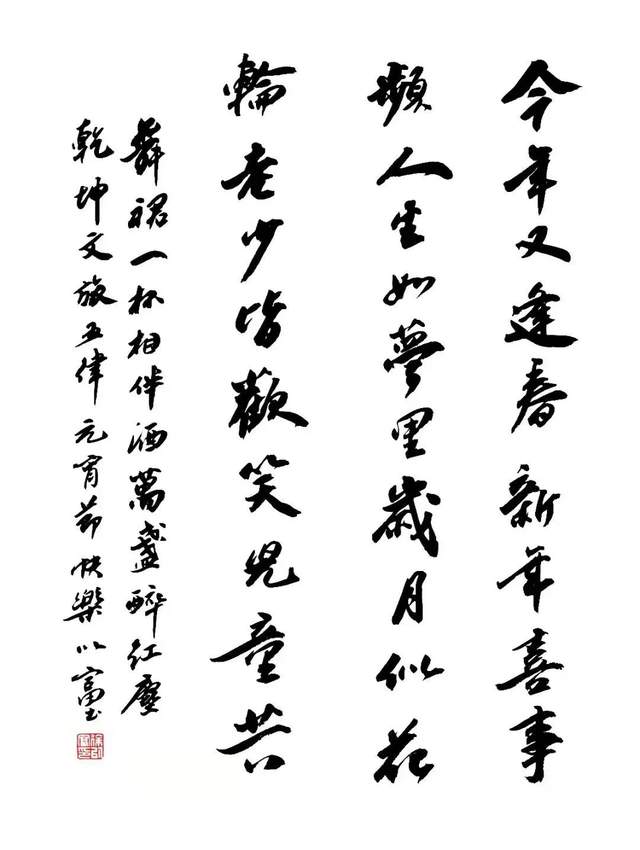 今年又逢春新年喜事
頻人生如夢里歲月似花
輪老少皆歡笑児童共
舞裙一杯相伴酒萬盞醉红塵
乾坤文旅五律元宵節快樂以富书